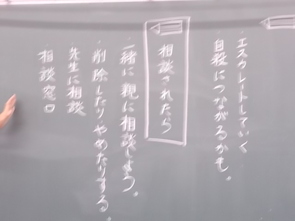 エスカレートしていく
自殺につながるかも。
相談されたら
一緒に親に相談しよう。
削除したりやめたりする。
先生に相談
相談窓口